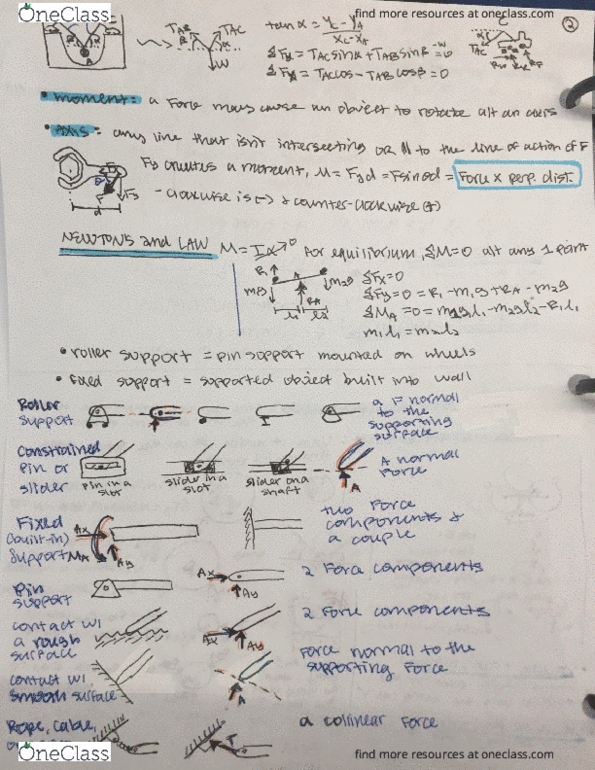 OneClass
find more resources at oneclass.com
②
T_AB T_AC
B α
W
A
tan α = (y_C - y_A)/(x_C - x_A)
ΣFx = T_AC sinα + T_AB sinβ - W = 0
ΣFx = T_AC cos - T_AB cosβ = 0
T_AC
• moment: a force may cause an object to rotate abt an axis
• axis: any line that isn't intersecting OR || to the line of action of F
Fy creates a moment, M = Fyd = Fsinθd = Force x perp. dist.
- clockwise is (-) & counter-clockwise (+)
F Fy
d
NEWTONS 2nd LAW M = Iα→0 For equilibrium, ΣM=0 abt any 1 point
R₁ A m₂g
m₁g R_A
l₁ l₂
ΣFx=0
ΣFy=0 = R₁ - m₁g + R_A - m₂g
ΣM_A = 0 = m₁gl₁ - m₂gl₂ - R₁l₁
m₁l₁ = m₂l₂
• roller support = pin support mounted on wheels
• fixed support = supported object built into wall
Roller support
a F normal to the supporting surface
Constrained pin or slider
pin in a slot
slider in a slot
slider on a shaft
A
A normal force
Fixed (built-in) support
Ax
MA
Ay
two force components & a couple
Pin support
Ax
Ay
2 force components
contact w/ a rough surface
Ax
Ay
2 force components
contact w/ smooth surface
A
Force normal to the supporting force
Rope, cable,
T
a collinear force
OneClass
find more resources at oneclass.com